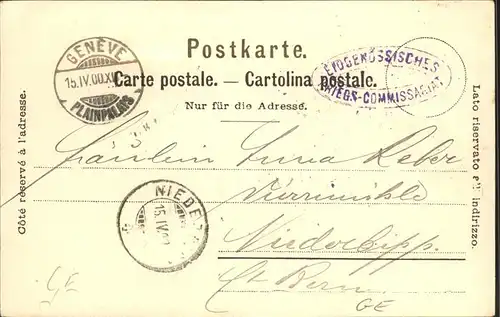 Postkarte.
Carte postale. — Cartolina postale.
Nur für die Adresse.
GENÈVE
15.IV.00.XI
PLAINPALAIS
EIDGENÖSSISCHES
KRIEGS-COMMISSARIAT
Côté réservé à l'adresse.
Lato riservato all' indirizzo.
Fräulein Reber
Niederbipp.
Ct. Bern
NIEDE
15.IV
GE
GE